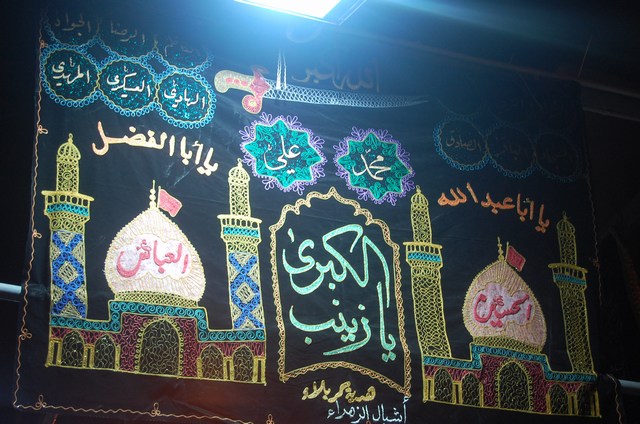 الجواد
الرضا
المهدي
العسكري
الهادي
الصادق
علي
محمد
يا أبا الفضل
يا أبا عبد الله
العباس
الحسين
الكبرى
يا زينب
هدية كربلاء
أشبال الزهراء